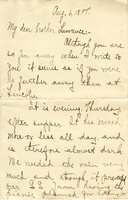 Aug. 6, 18
My dear brother Lawrence:
Although you are
so far away when I write to
you it seems as if you were
no further away than at
Lincoln.
It is evening, Thursday
after supper. It has rained
more or less all day, and
is therefore almost dark.
We needed the rain very
much and though it
for I. O. from having the
picnic planned for today